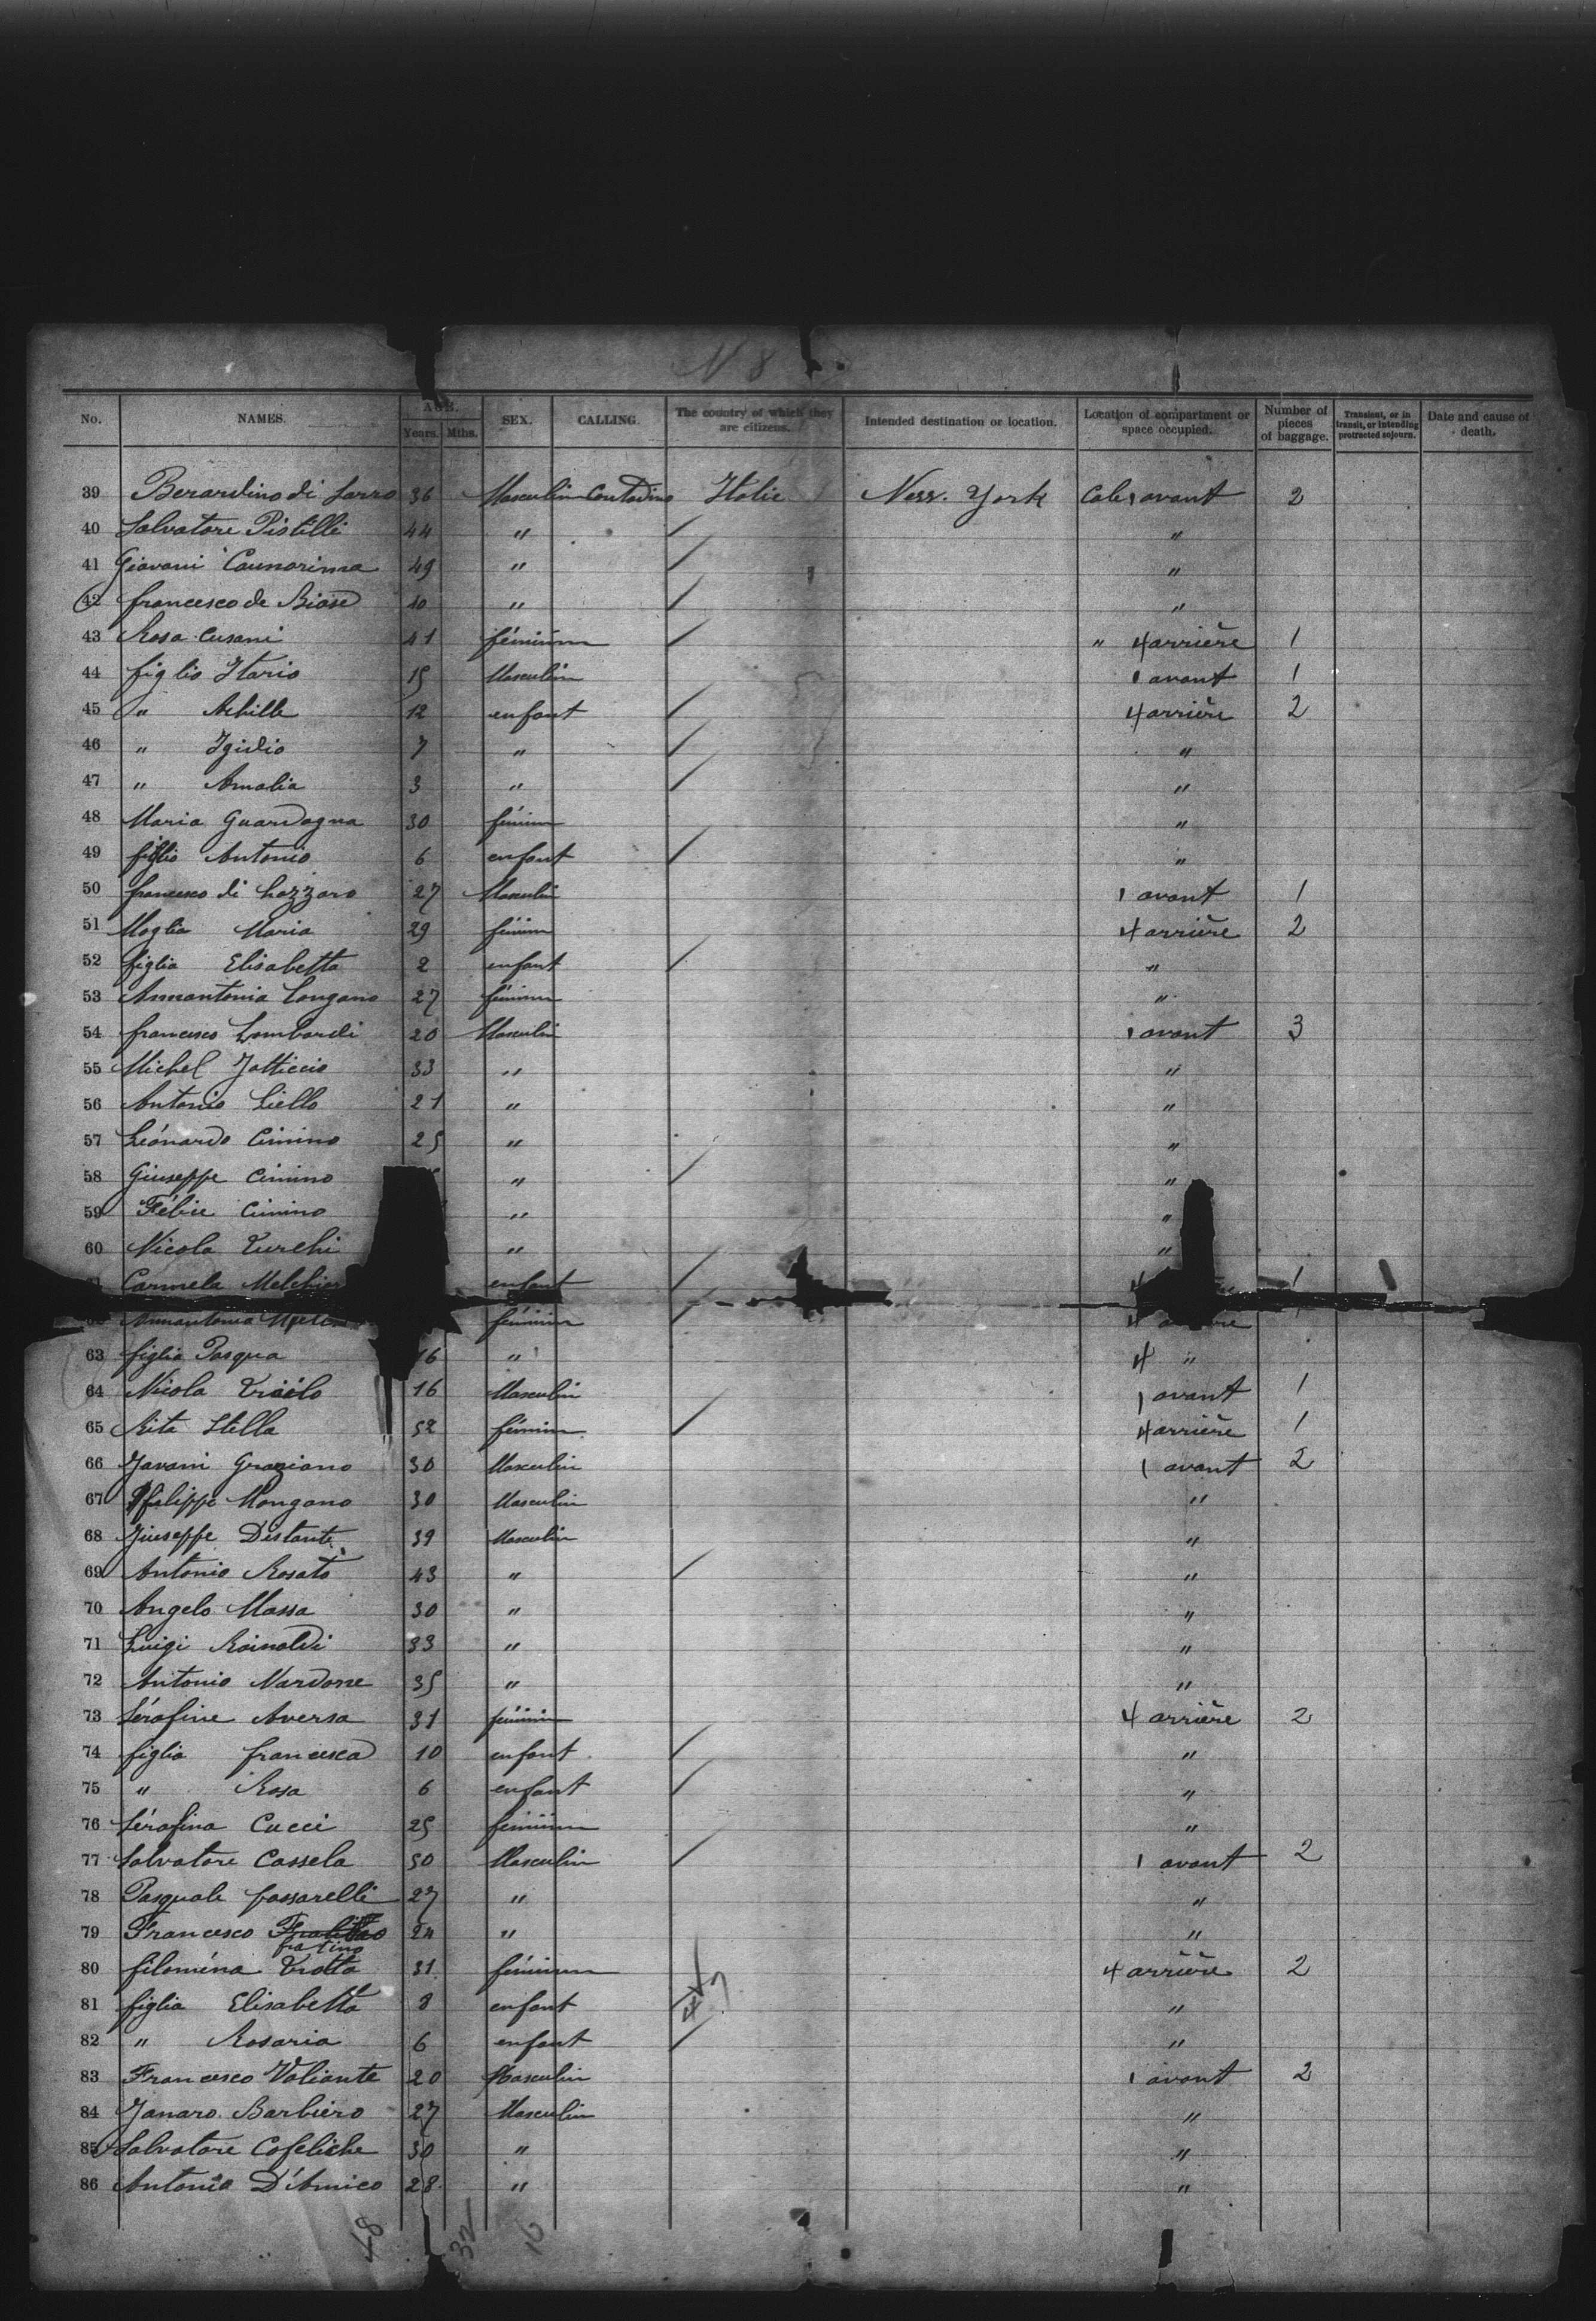 N 8
No. NAMES. AGE. Years. Mths. SEX. CALLING. The country of which they are citizens. Intended destination or location. Location of compartment or space occupied. Number of pieces of baggage. Transient, or in transit, or intending protracted sojourn. Date and cause of death.
39 Berardino di Sarro 36 Masculin Contadino Italie New. York Cale 1 avant 2
40 Salvatore Pistilli 44 " "
41 Giovani 49 " "
42 francesco de Biase 10 " "
43 Rosa Cusani 41 féminin " 4 arrière 1
44 figlio Itario 15 Masculin 1 avant 1
45 " Achille 12 enfant 4 arrière 2
46 " Igidio 7 " "
47 " Amalia 3 " "
48 Maria Guardagna 30 féminin "
49 figlio Antonio 6 enfant "
50 francesco di Lazzaro 27 Masculin 1 avant 1
51 Moglia Maria 29 féminin 4 arrière 2
52 figlia Elisabetta 2 enfant "
53 Annantonia Longano 27 féminin "
54 francesco Lombardi 20 Masculin 1 avant 3
55 Michel Jatticcio 33 " "
56 Antonio Liello 21 " "
57 Léonardo Cimino 25 " "
58 Giuseppe Cimino " "
59 Félice Cimino " "
60 Nicola Turchi " "
Carmela enfant 4 1
Annantonia féminin 4
63 figlia Pasqua 16 " 4 "
64 Nicola 16 Masculin 1 avant 1
65 Rita Stella 52 féminin 4 arrière 1
66 Javani Graziano 30 Masculin 1 avant 2
67 falippe Mongano 30 Masculin "
68 Giuseppe Distante 39 Masculin "
69 Antonio Rosato 43 " "
70 Angelo Massa 30 " "
71 Luigi Rainaldi 33 " "
72 Antonio Nardone 35 " "
73 Sérafine Aversa 31 féminin 4 arrière 2
74 figlia francesca 10 enfant "
75 " Rosa 6 enfant "
76 Sérafina Cucci 25 féminin "
77 Salvatore Cassela 50 Masculin 1 avant 2
78 Pasquale fassarelli 27 " "
79 Francesco fratino 24 " "
80 filoména Trotta 31 féminin 4 arrière 2
81 figlia Elisabetta 8 enfant "
82 " Rosaria 6 enfant "
83 Francesco Valiante 20 Masculin 1 avant 2
84 Janaro Barbiero 27 Masculin "
85 Salvatore Cofeliche 30 " "
86 Antonio D'Amico 28 " "
48 32 16